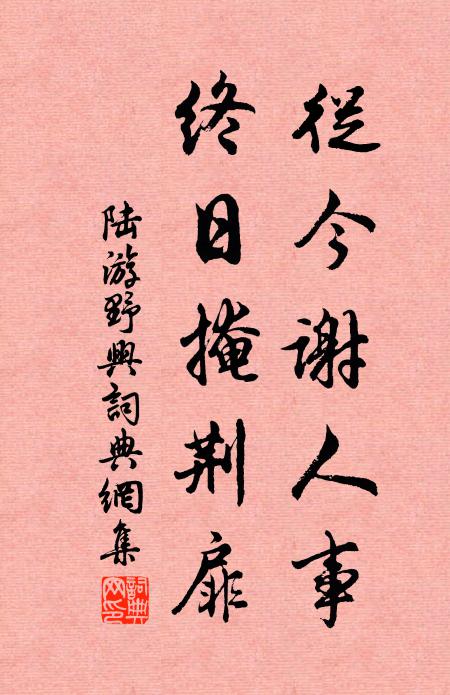 從今謝人事
終日掩荆扉
陸游野興詞典網集
詞典网印